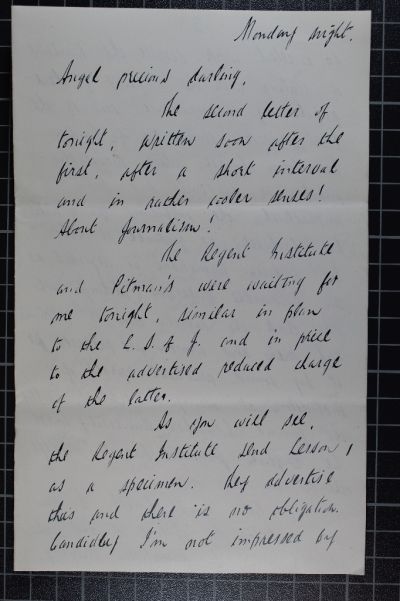 Monday night.
Angel precious darling,
The second letter of
tonight, written soon after the
first, after a short interval
and in rather cooler senses!
About Journalism!
The Regent Institute
and Pitman's were waiting for
me tonight, similar in plan
to the L.S. of J. and in price
to the advertised reduced charge
of the latter.
As you will see,
the Regent Institute send Lesson 1
as a specimen. They advertise
this and there is no obligation.
Candidly I'm not impressed by